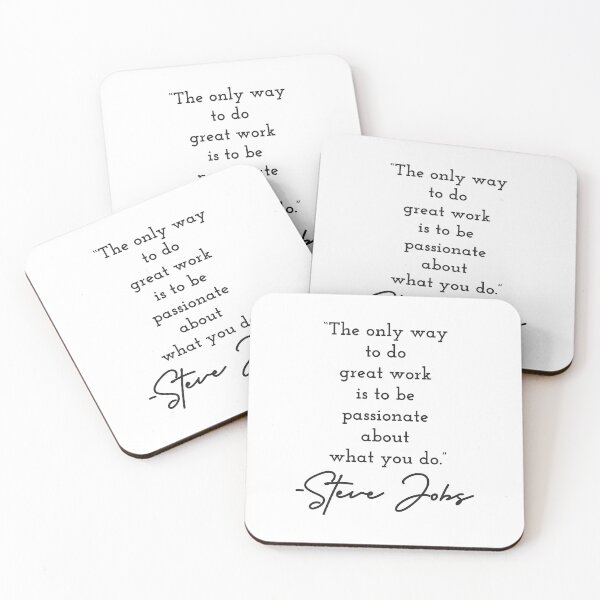 “The only way
to do
great work
is to be
passionate
“The only way
to do
great work
is to be
passionate
about
what you do.”
“The only way
to do
great work
is to be
passionate
about
what you do
-Steve J
“The only way
to do
great work
is to be
passionate
about
what you do.”
-Steve Jobs